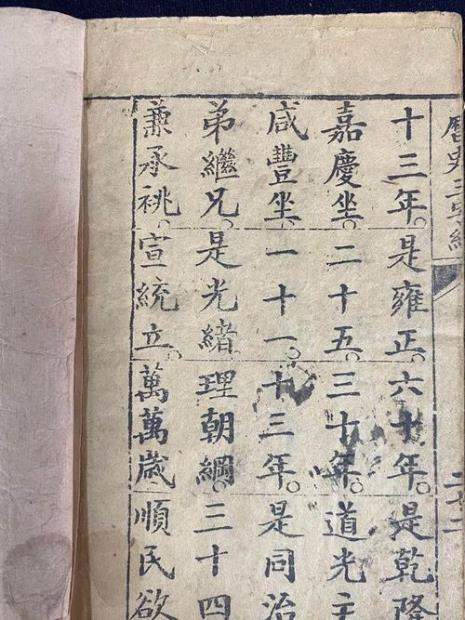 曆史三字經
十三年。是雍正。六十年。是乾隆
嘉慶坐。二十五。三十年。道光主
咸豐坐。一十一。十三年。是同治
弟繼兄。是光緒。理朝綱。三十四
兼承祧。宣統立。萬萬歲順民欲